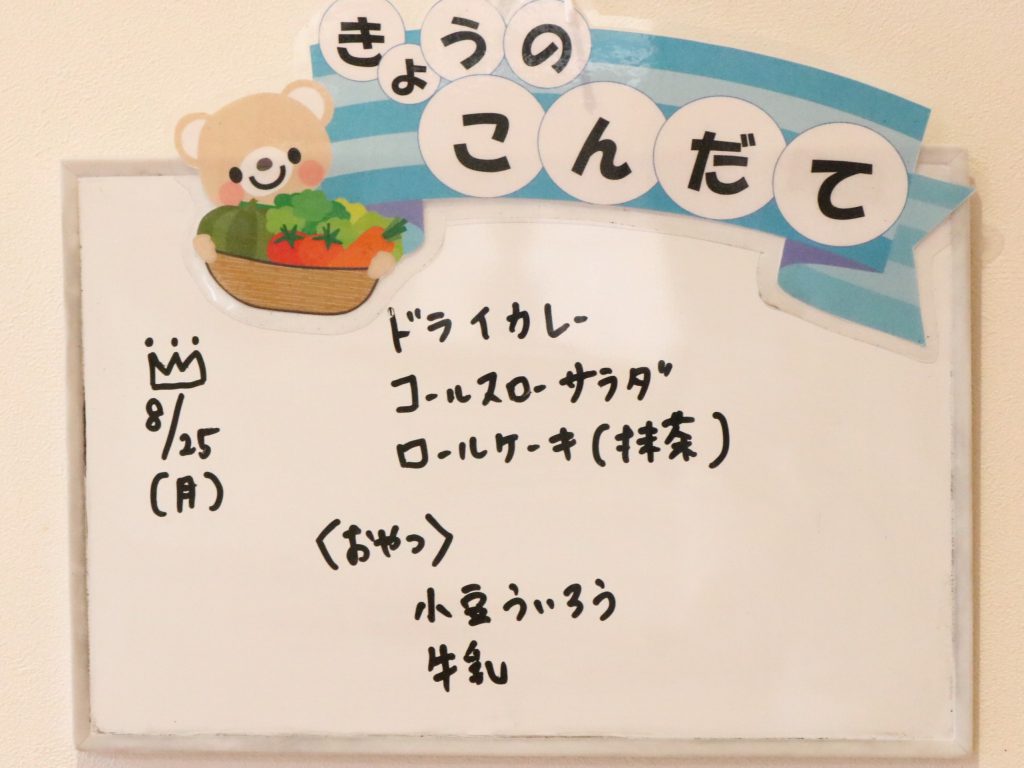 きょうの
こんだて
8/25
(月)
ドライカレー
コールスローサラダ
ロールケーキ(抹茶)
〈おやつ〉
小豆ういろう
牛乳